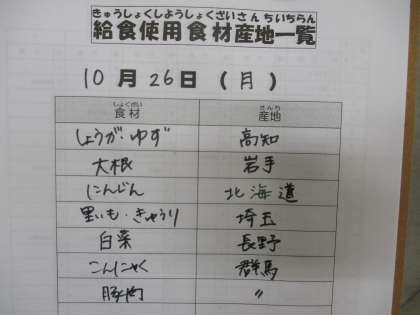 きゅうしょくしようしょくざいさんちいちらん
給食使用食材産地一覧
10月26日(月)
しょくざい さんち
食材 産地
しょうが・ゆず 高知
大根 岩手
にんじん 北海道
里いも・きゅうり 埼玉
白菜 長野
こんにゃく 群馬
豚肉 〃